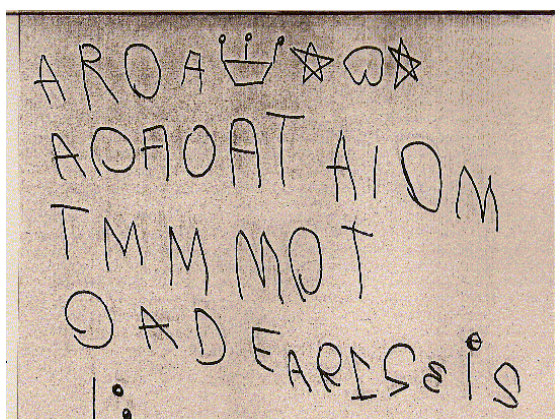 AROA
AOAOAT AIOM
TMMMOT
OAD EARISSaiS